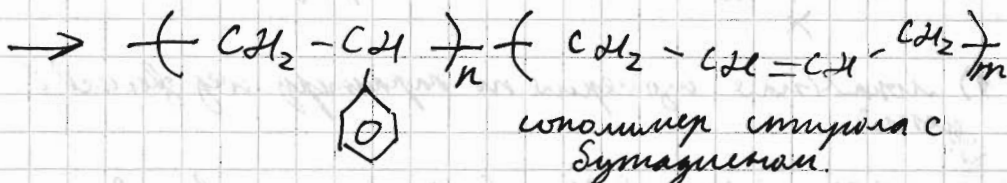 → (- CH₂ - CH -)n (- CH₂ - CH = CH - CH₂ -)m
сополимер стирола с
бутадиеном.